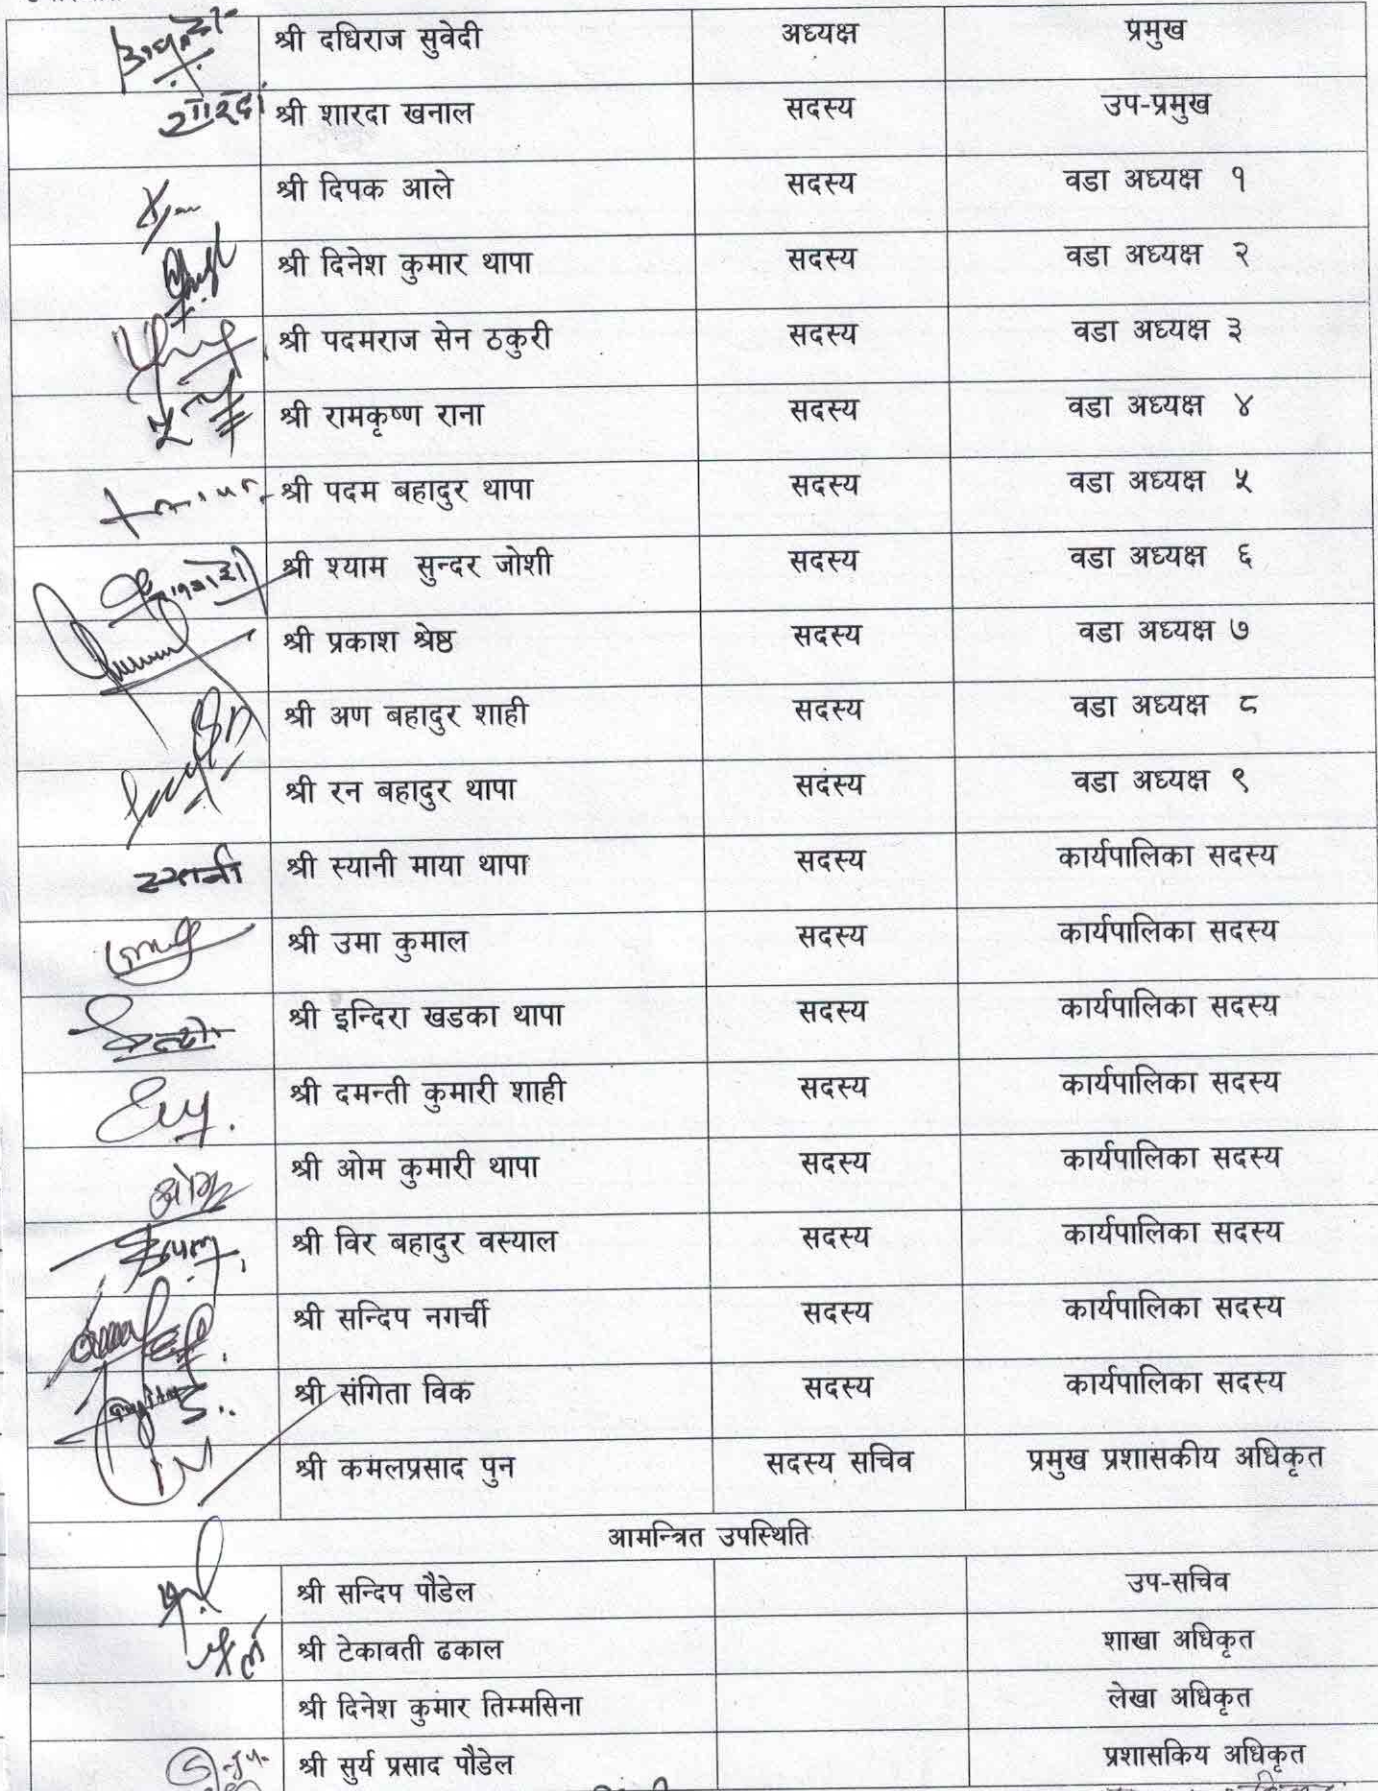 श्री दधिराज सुवेदी अध्यक्ष प्रमुख
शारदा श्री शारदा खनाल सदस्य उप-प्रमुख
श्री दिपक आले सदस्य वडा अध्यक्ष १
श्री दिनेश कुमार थापा सदस्य वडा अध्यक्ष २
श्री पदमराज सेन ठकुरी सदस्य वडा अध्यक्ष ३
श्री रामकृष्ण राना सदस्य वडा अध्यक्ष ४
श्री पदम बहादुर थापा सदस्य वडा अध्यक्ष ५
श्री श्याम सुन्दर जोशी सदस्य वडा अध्यक्ष ६
श्री प्रकाश श्रेष्ठ सदस्य वडा अध्यक्ष ७
श्री अण बहादुर शाही सदस्य वडा अध्यक्ष ८
श्री रन बहादुर थापा सदस्य वडा अध्यक्ष ९
स्यानी श्री स्यानी माया थापा सदस्य कार्यपालिका सदस्य
श्री उमा कुमाल सदस्य कार्यपालिका सदस्य
श्री इन्दिरा खडका थापा सदस्य कार्यपालिका सदस्य
श्री दमन्ती कुमारी शाही सदस्य कार्यपालिका सदस्य
ओम श्री ओम कुमारी थापा सदस्य कार्यपालिका सदस्य
श्री विर बहादुर वस्याल सदस्य कार्यपालिका सदस्य
श्री सन्दिप नगर्ची सदस्य कार्यपालिका सदस्य
श्री संगिता विक सदस्य कार्यपालिका सदस्य
श्री कमलप्रसाद पुन सदस्य सचिव प्रमुख प्रशासकीय अधिकृत
आमन्त्रित उपस्थिति
श्री सन्दिप पौडेल उप-सचिव
श्री टेकावती ढकाल शाखा अधिकृत
श्री दिनेश कुमार तिम्मसिना लेखा अधिकृत
श्री सुर्य प्रसाद पौडेल प्रशासकिय अधिकृत